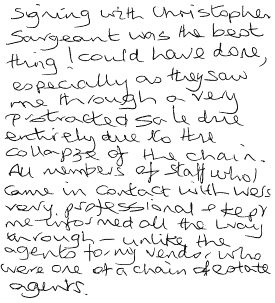 signing with Christopher
Sargeant was the best
thing I could have done,
especially as they saw
me through a very
protracted sale due
entirely due to the
collapse of the chain.
All members of staff who I
came in contact with were
very professional & kept
me informed all the way
through – unlike the
agents for my vendor who
were one of a chain of estate
agents.